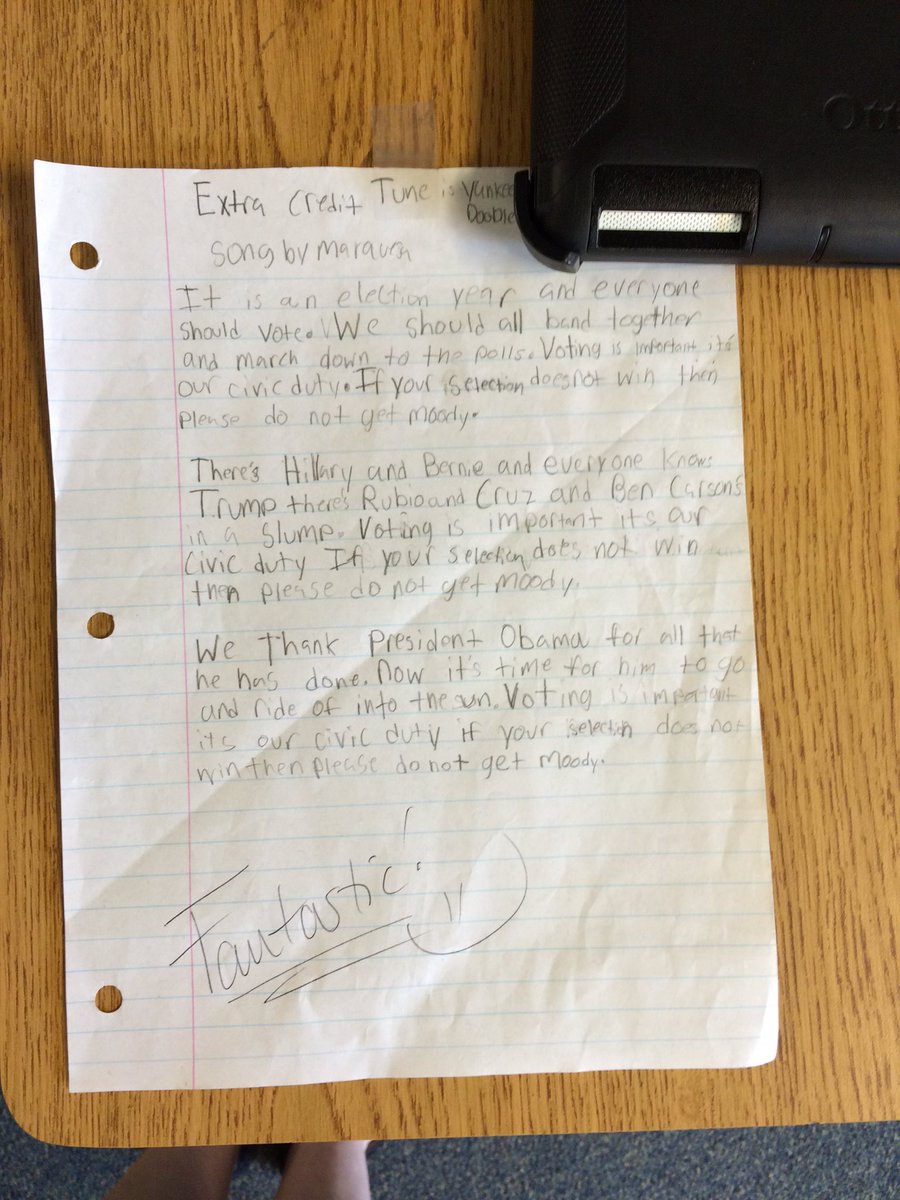 Extra Credit Tune is Yankee
Dooble
song by
It is an election year and everyone
should vote. We should all band together
and march down to the polls. Voting is important it's
our civic duty. If your selection does not win then
please do not get moody.
There's Hillary and Bernie and everyone knows
Trump there's Rubio and Cruz and Ben Carson's
in a slump. Voting is important its our
civic duty If your selection does not win
then please do not get moody.
We Thank President Obama for all that
he has done. Now it's time for him to go
and ride of into the sun. Voting is important
its our civic duty if your selection does not
win then please do not get moody.
Fantastic!